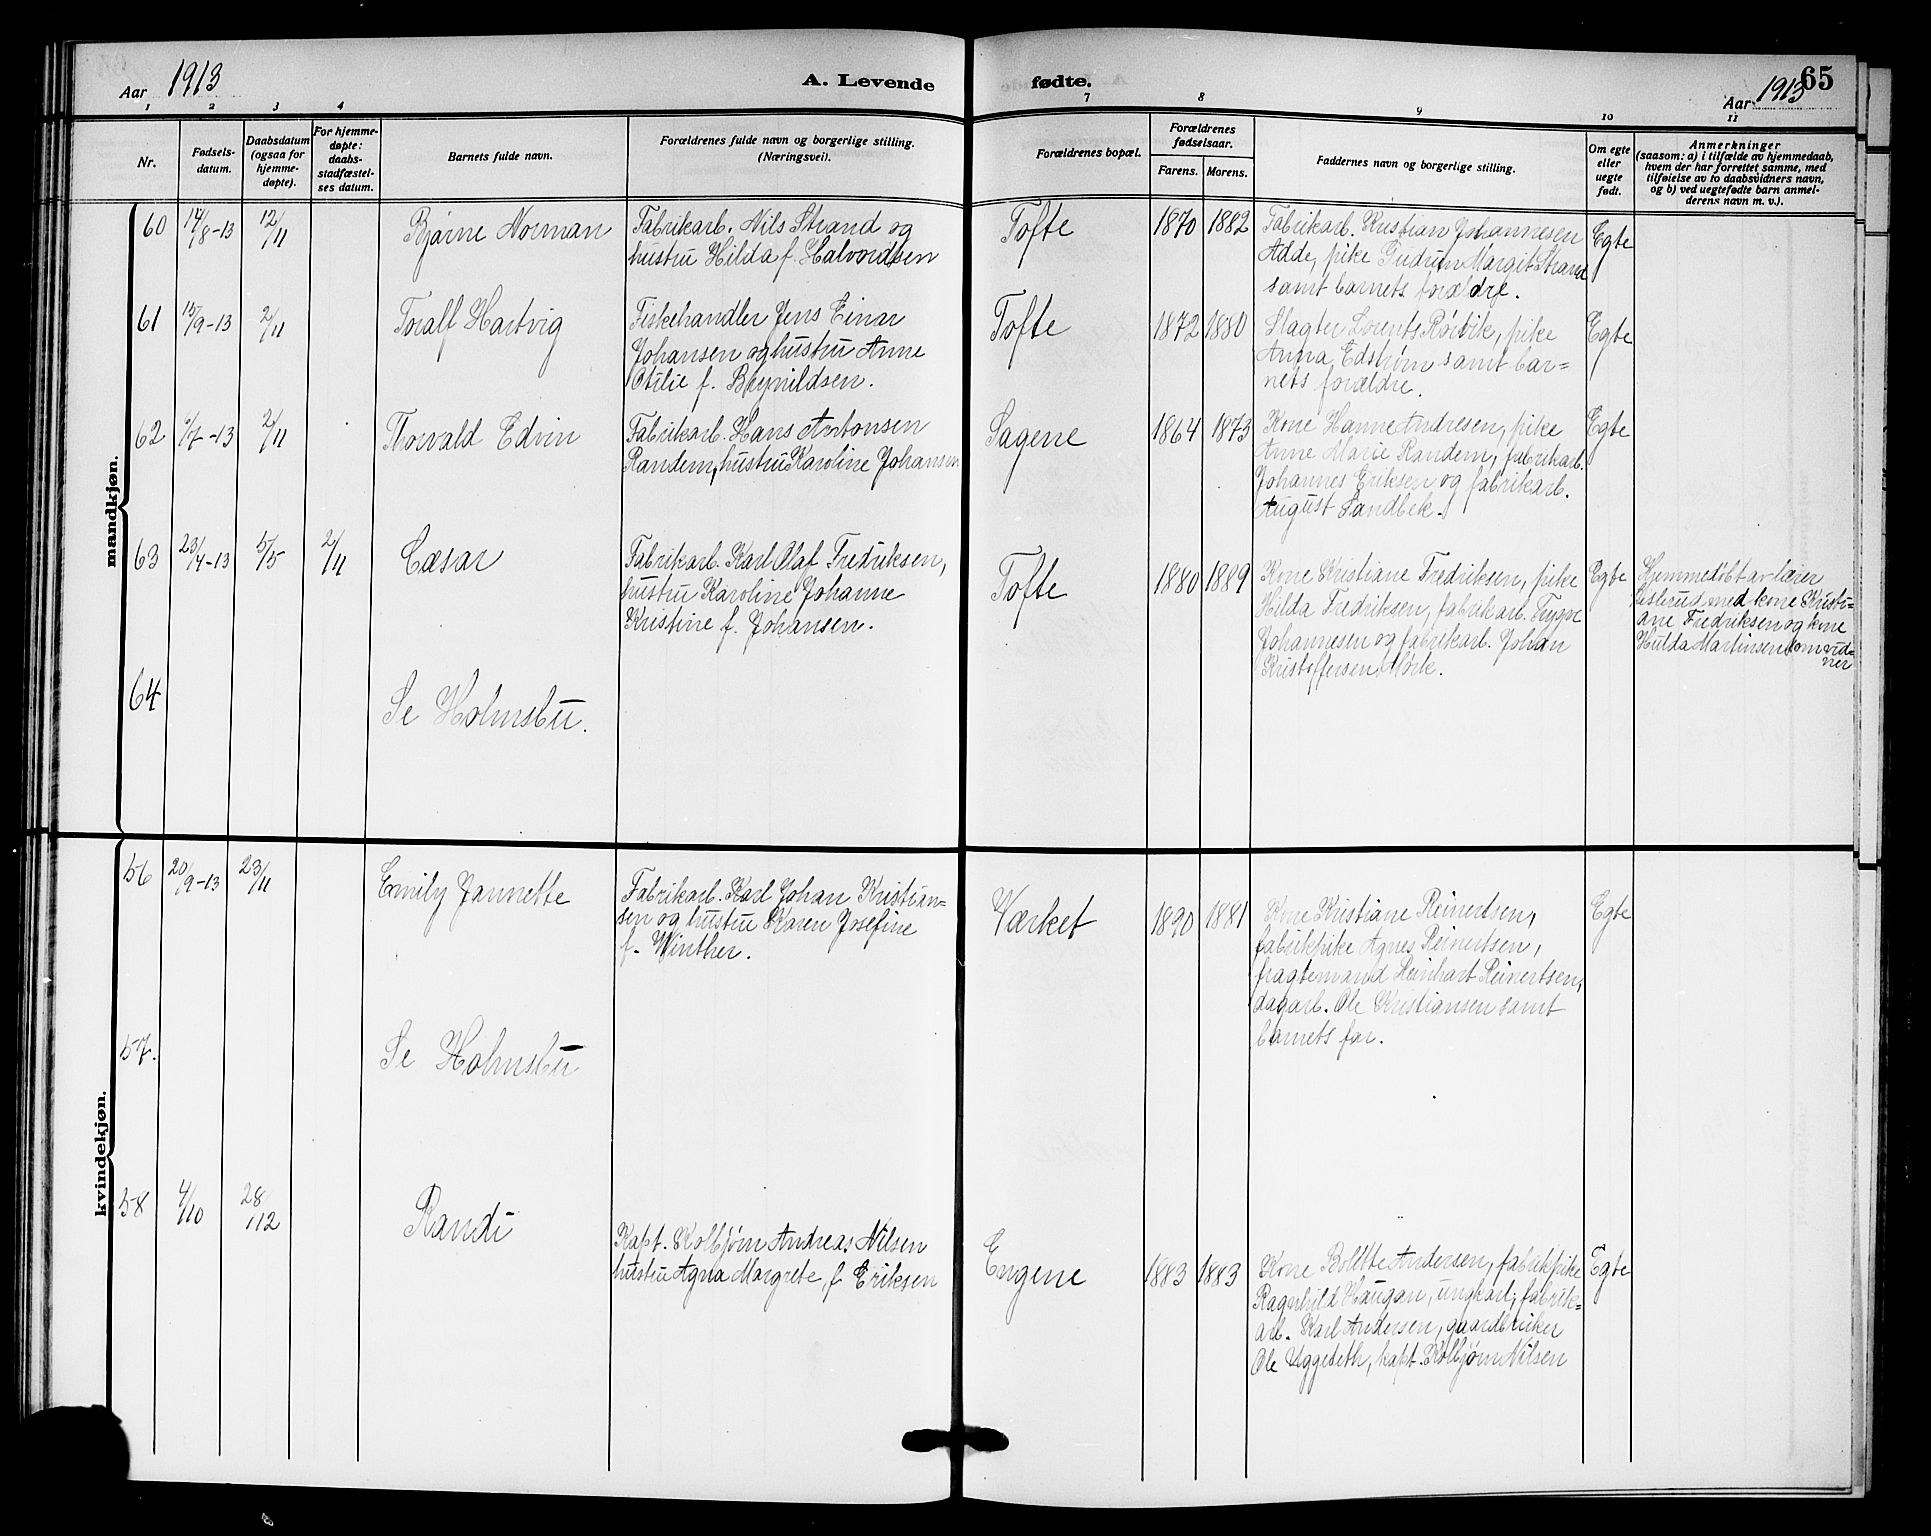 Aar 1913
A. Levende
fødte.
Aar 1913
65
1 2 3 4 7 8 9 10 11
Nr.
Fødsels-
datum.
Daabsdatum
(ogsaa for
hjemme-
døpte).
For hjemme-
døpte:
daabs-
stadfæstel-
ses datum.
Barnets fulde navn.
Forældrenes fulde navn og borgerlige stilling.
(Næringsvei).
Forældrenes bopæl.
Forældrenes
fødselsaar.
Farens. Morens.
Faddernes navn og borgerlige stilling.
Om egte
eller
uegte
født.
Anmerkninger
(saasom: a) i tilfælde av hjemmedaab,
hvem der har forrettet samme, med
tilføielse av to daabsvidners navn,
og b) ved uegtefødte barn anmel-
derens navn m. v.).
mandkjøn.
60 14/8-13 12/11 Bjarne Norman
Fabrikarb. Nils Strand og
hustru Hilda f. Halvordsen
Tofte 1870 1882
Fabrikarb. Kristian Johannesen
Adde, pike Gudrun Margit Strand
samt barnets forældre.
Egte
61 15/9-13 2/11 Toralf Hartvig
Fiskehandler Jens Einar
Johansen og hustru Anne
Otilie f. Brynildsen.
Tofte 1872 1880
Slagter Lorents Rörvik, pike
Anna Edstrøm samt bar=
nets forældre.
Egte
62 /7-13 2/11 Thorvald Edvin
Fabrikarb. Hans Antonsen
Randem, hustru Karoline Johansen
Sagene 1864 1873
Kone Hanne Andresen, pike
Anne Marie Randem, fabrikarb.
Johannes Eriksen og fabrikarb.
August Sandbek.
Egte
63 23/4-13 5/5 2/11 Cæsar
Fabrikarb. Karl Olaf Fredriksen,
hustru Karoline Johanne
Kristine f. Johansen.
Tofte 1880 1889
Kone Kristiane Fredriksen, pike
Hilda Fredriksen, fabrikarb. Trygve
Johannesen og fabrikarb. Johan
Kristoffersen Mörk.
Egte
Hjemmedöbt av lærer
med kone Kristi=
ane Fredriksen og kone
Hulda Martinsen som vid=
ner
64 Se Holmsbu.
kvindekjøn.
56 20/9-13 23/11 Emily Jannette
Fabrikarb. Karl Johan Kristian=
sen og hustru Karen Josefine
f. Winther.
Værket 1890 1881
Kone Kristiane Reinertsen,
fabrikpike Agnes Reinertsen,
fragtemand Reinhart Reinertsen,
dagarb. Ole Kristiansen samt
barnets far.
Egte
57. Se Holmsbu
58 4/10 28/12 Randi
Kapt. Kolbjørn Andreas Nilsen
hustru Agna Margrete f Eriksen
Engene 1883 1883
Kone Bolette Andersen, fabrikpike
Ragnhild Haugan, ungkarl, fabrik=
arb. Karl Andersen, gaardbruker
Ole Uggedeth, kapt. Kolbjørn Nilsen
Egte